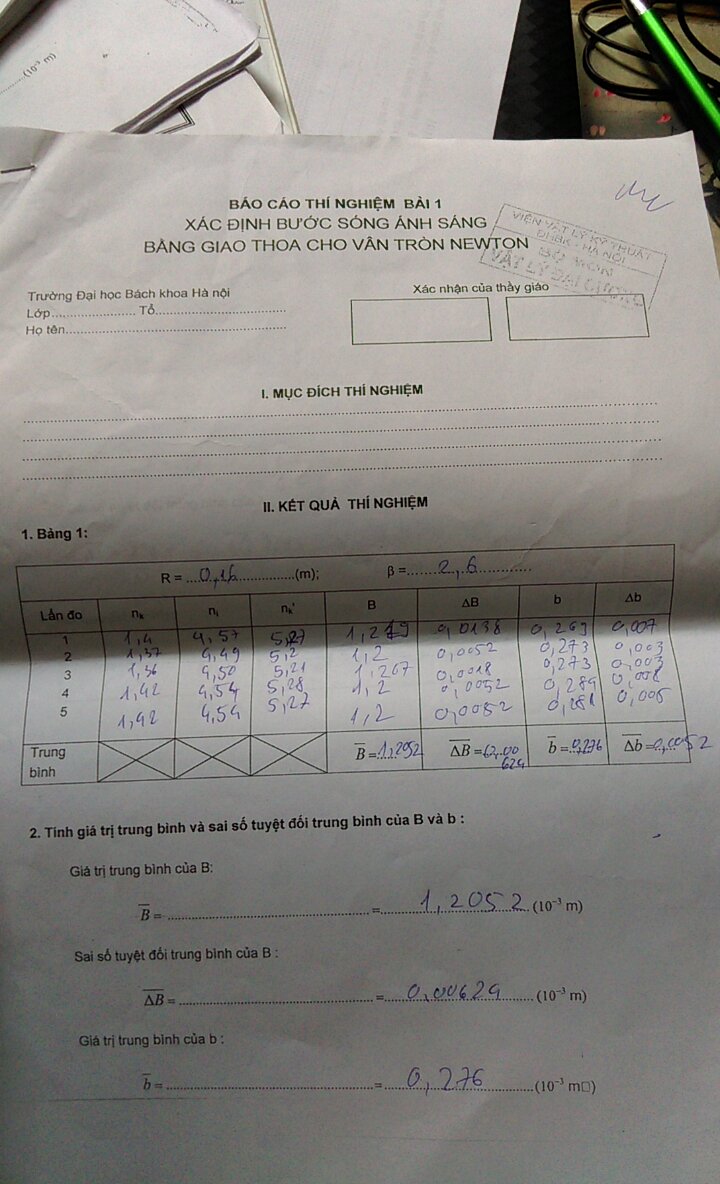 (10⁻³ m)
BÁO CÁO THÍ NGHIỆM BÀI 1
XÁC ĐỊNH BƯỚC SÓNG ÁNH SÁNG
BẰNG GIAO THOA CHO VÂN TRÒN NEWTON
VIỆN VẬT LÝ KỸ THUẬT
ĐHBK - HÀ NỘI
BỘ MÔN
VẬT LÝ ĐẠI CƯƠNG
Trường Đại học Bách khoa Hà nội
Lớp........................ Tổ.....................................
Họ tên..............................................................
Xác nhận của thầy giáo
I. MỤC ĐÍCH THÍ NGHIỆM
II. KẾT QUẢ THÍ NGHIỆM
1. Bảng 1:
R = ...0,16...............(m); β =........2,6..............
Lần đo nₖ nᵢ nₖ' B ΔB b Δb
1 1,4 4,57 5,27 0,0138 0,269 0,007
2 1,37 4,49 5,2 1,2 0,0052 0,273 0,003
3 1,36 4,50 5,21 1,207 0,0018 0,273 0,003
4 1,42 4,54 5,28 1,2 0,0052 0,284 0,008
5 1,42 4,54 5,27 1,2 0,0052 0,281 0,005
Trung bình B̅ =1,2052 ΔB̅ =0,00624 b̅ =0,276 Δb̅ =0,0052
2. Tính giá trị trung bình và sai số tuyệt đối trung bình của B và b :
Giá trị trung bình của B:
B̅ = ..................................................... =............1,2052...(10⁻³ m)
Sai số tuyệt đối trung bình của B :
ΔB̅ = ................................................... =.......0,00624............ (10⁻³ m)
Giá trị trung bình của b :
b̅ = ..................................................... = ......0,276..................(10⁻³ m□)